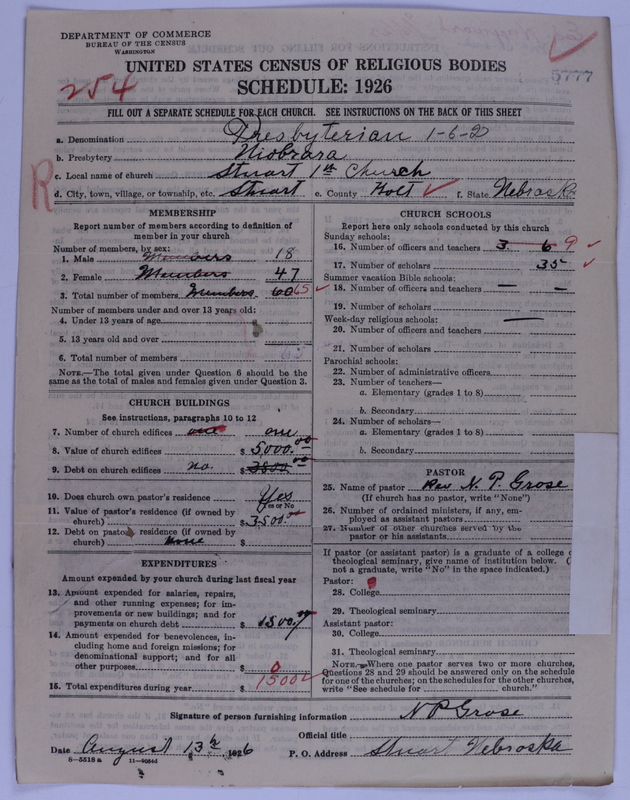 DEPARTMENT OF COMMERCE
BUREAU OF THE CENSUS
WASHINGTON
UNITED STATES CENSUS OF RELIGIOUS BODIES
SCHEDULE: 1926
254
5777
FILL OUT A SEPARATE SCHEDULE FOR EACH CHURCH. SEE INSTRUCTIONS ON THE BACK OF THIS SHEET
a. Denomination Presbyterian 1-6-2
b. Presbytery Niobrara
c. Local name of church Stuart 1st Church
R
d. City, town, village, or township, etc. Stuart e. County Holt f. State Nebraska
MEMBERSHIP
Report number of members according to definition of
member in your church
Number of members, by sex:
1. Male Members 18
2. Female Members 47
3. Total number of members members 60 65
Number of members under and over 13 years old:
4. Under 13 years of age
5. 13 years old and over
6. Total number of members 65
NOTE.—The total given under Question 6 should be
same as the total of males and females given under Question 3.
CHURCH BUILDINGS
See instructions, paragraphs 10 to 12
7. Number of church edifices one one
8. Value of church edifices $ 5,000.00
9. Debt on church edifices no. $ 3500.00
10. Does church own pastor's residence Yes
Yes or No
11. Value of pastor's residence (if owned by
church) $ 3500.00
12. Debt on pastor's residence (if owned by
church) none $
EXPENDITURES
Amount expended by your church during last fiscal year
13. Amount expended for salaries, repairs,
and other running expenses; for im-
provements or new buildings; and for
payments on church debt $ 1500.
14. Amount expended for benevolences, in-
cluding home and foreign missions; for
denominational support; and for all
other purposes $ 0
15. Total expenditures during year $ 1500
CHURCH SCHOOLS
Report here only schools conducted by this church
Sunday schools:
16. Number of officers and teachers 3 6 9
17. Number of scholars 35
Summer vacation Bible schools:
18. Number of officers and teachers — —
19. Number of scholars
Week-day religious schools: —
20. Number of officers and teachers
21. Number of scholars
Parochial schools:
22. Number of administrative officers
23. Number of teachers—
a. Elementary (grades 1 to 8)
b. Secondary
24. Number of scholars—
a. Elementary (grades 1 to 8)
b. Secondary
PASTOR
25. Name of pastor Rev N. P. Grose
(If church has no pastor, write "None")
26. Number of ordained ministers, if any, em-
ployed as assistant pastors
27. Number of other churches served by the
pastor or his assistants
If pastor (or assistant pastor) is a graduate of a college
theological seminary, give name of institution below.
not a graduate, write "No" in the space indicated.)
Pastor:
28. College
29. Theological seminary
Assistant pastor:
30. College
31. Theological seminary
NOTE.—Where one pastor serves two or more churches,
Questions 28 and 29 should be answered only on the schedule
for one of the churches; on the schedules for the other churches,
write "See schedule for church."
Signature of person furnishing information N P Grose
Official title
Date August 13th 1926 P. O. Address Stuart Nebraska
8—5518 a 11—9054d